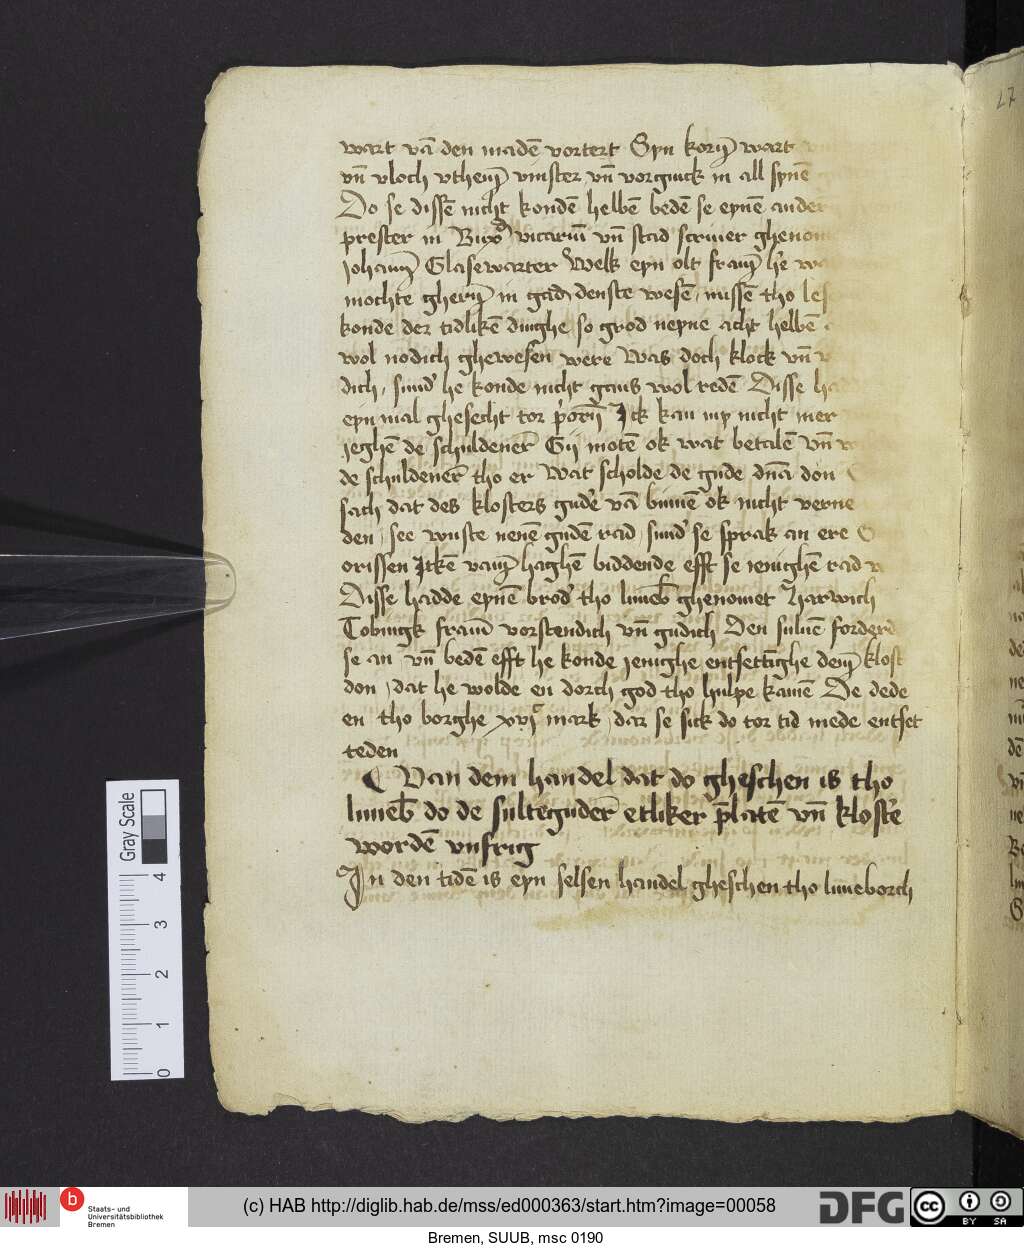 wart vā den madē vortert Syn korn wart
vn̄ vloch vthem vinster vn̄ vorginck in all synē
Do se dissē nicht kondē helbē bedē se eynē ander
prester in Bux vicariū vn̄ stad scriuer ghenom
Johann Glasewarter Welk eyn olt fram he wa
mochte ghern in gades denste wesē, missē tho les
konde der tidlikē dinghe so grod neyne acht helbē
wol nodich ghewesen were Was doch klock vn̄
dich, sund' he konde nicht gans wol redē Disse had
eyn mal ghesecht tor p'orn̄ Ick kan my nicht mer
jeghē de schuldener Gij motē ok wat betalē vn̄
de schuldener tho er Wat scholde de gude dn̄a don
sach dat des klosters gude vā binnē ok nicht verne
den, see wuste nenē gudē rad, sund' se sprak an ere
orissen Ickē vam haghē biddende efft se ienighē rad
Disse hadde eynē brod' tho luneb' ghenomet Harwich
Tobingk fram vorstendich vn̄ gudich Den suluē forderd
se an vn̄ bedē efft he konde jenighe entsettīghe dem klost
don, dat he wolde en dorch god tho hulpe kamē De dede
en tho borghe xvjc mark, dar se sick do tor tid mede entset
teden
Van dem handel dat do gheschen is tho
luneb' do de sulteguder etliker p̄latē vn̄ kloste
wordē vnfrig
In den tidē is eyn selsen handel gheschen tho luneborch
27
Gray Scale
4
3
2
1
0
b
Staats- und
Universitätsbibliothek
Bremen
(c) HAB http://diglib.hab.de/mss/ed000363/start.htm?image=00058
DFG
cc
BY SA
Bremen, SUUB, msc 0190